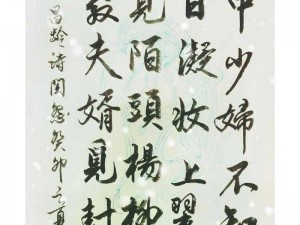 中少婦不知
日凝妝上翠
見陌頭楊柳
教夫婿覓封
昌龄诗閨怨癸卯之夏